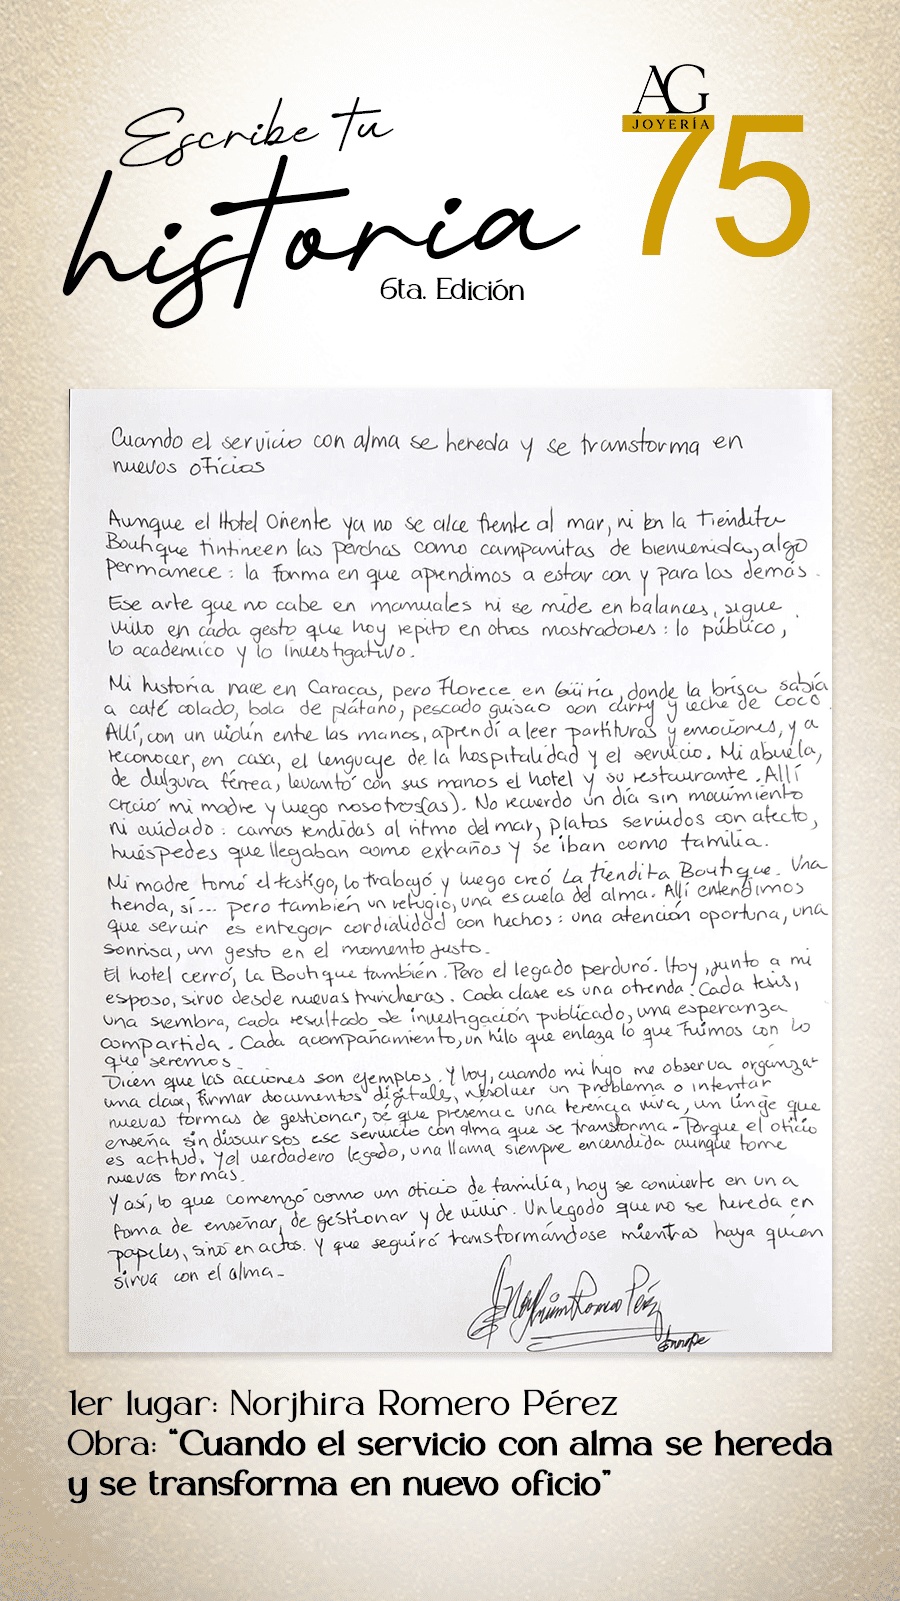 Escribe tu
historia
6ta. Edición
AG
JOYERÍA
75
Cuando el servicio con alma se hereda y se transforma en
nuevos oficios
Aunque el Hotel Oriente ya no se alce frente al mar, ni en la Tiendita
Boutique tintineen las perchas como campanitas de bienvenida, algo
permanece: la forma en que aprendimos a estar con y para los demás.
Ese arte que no cabe en manuales ni se mide en balances, sigue
vivo en cada gesto que hoy repito en otros mostradores: lo público,
lo académico y lo investigativo.
Mi historia nace en Caracas, pero florece en Güiria, donde la brisa sabía
a café colado, bola de plátano, pescado guisao con curry y leche de coco.
Allí, con un violín entre las manos, aprendí a leer partituras y emociones, y a
reconocer, en casa, el lenguaje de la hospitalidad y el servicio. Mi abuela,
de dulzura férrea, levantó con sus manos el hotel y su restaurante. Allí
creció mi madre y luego nosotros(as). No recuerdo un día sin movimiento
ni cuidado: camas tendidas al ritmo del mar, platos servidos con afecto,
huéspedes que llegaban como extraños y se iban como familia.
Mi madre tomó el testigo, lo trabajó y luego creó La tiendita Boutique. Una
tienda, sí... pero también un refugio, una escuela del alma. Allí entendimos
que servir es entregar cordialidad con hechos: una atención oportuna, una
sonrisa, un gesto en el momento justo.
El hotel cerró, la Boutique también. Pero el legado perduró. Hoy, junto a mi
esposo, sirvo desde nuevas trincheras. Cada clase es una ofrenda. Cada tesis,
una siembra, cada resultado de investigación publicado, una esperanza
compartida. Cada acompañamiento, un hilo que enlaza lo que fuimos con lo
que seremos.
Dicen que las acciones son ejemplos. Y hoy, cuando mi hijo me observa organizar
una clase, firmar documentos digitales, resolver un problema o intentar
nuevas formas de gestionar, sé que presencia una herencia viva, un linaje que
enseña sin discursos ese servicio con alma que se transforma. Porque el oficio
es actitud. Y el verdadero legado, una llama siempre encendida aunque tome
nuevas formas.
Y así, lo que comenzó como un oficio de familia, hoy se convierte en una
forma de enseñar, de gestionar y de vivir. Un legado que no se hereda en
papeles, sino en actos. Y que seguirá transformándose mientras haya quien
sirva con el alma.
Norjhira Romero Pérez
1er lugar: Norjhira Romero Pérez
Obra: "Cuando el servicio con alma se hereda
y se transforma en nuevo oficio"